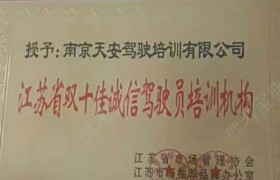 授予:南京天安驾驶培训有限公司
江苏省双十佳诚信驾驶员培训机构
江苏省市场管理协会
江苏市场指导品牌办公室